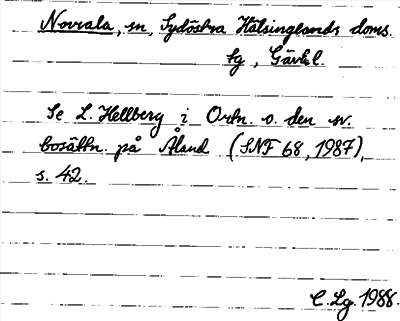 Norrala, sn, Sydöstra Hälsinglands doms.
fg, Gävl. l.
Se L. Hellberg i Ortn. o. den sv.
bosättn. på Åland (SNF 68, 1987),
s. 42.
C. Lg. 1988.